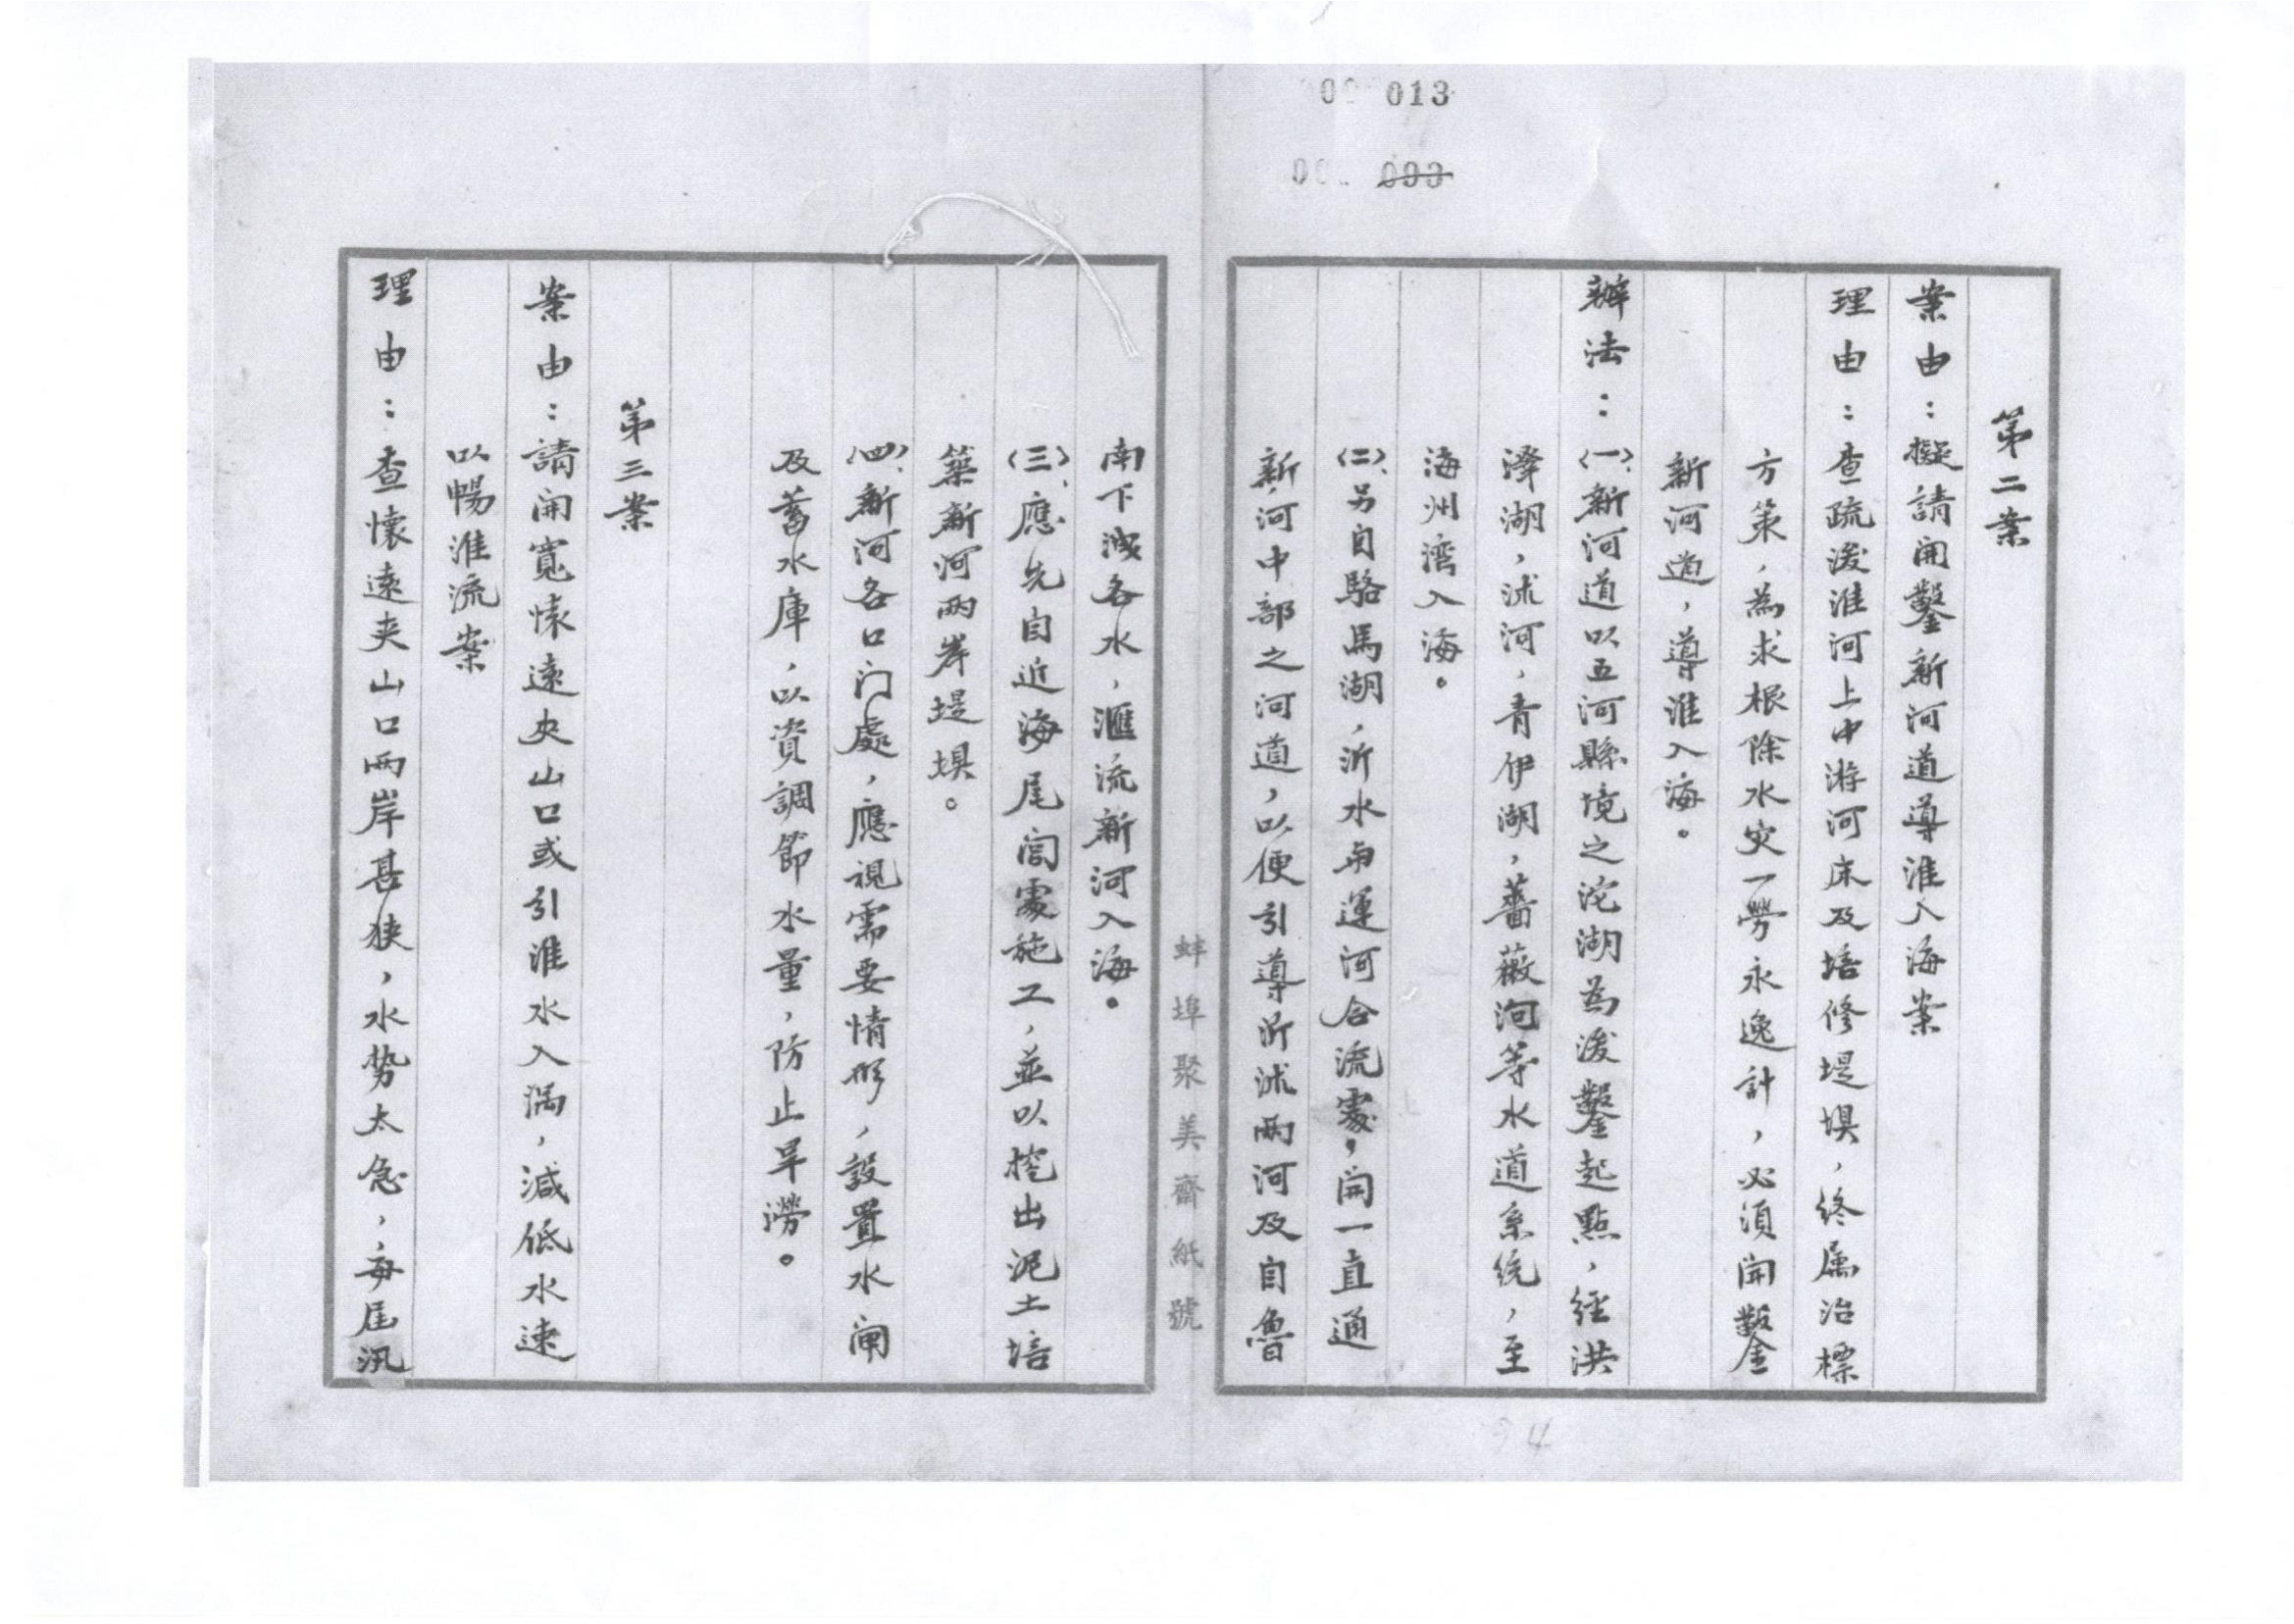 013
093
第二案
案由：擬請開鑿新河道導淮入海案
理由：查疏浚淮河上中游河床及培修堤垻，終属治標
方策，為求根除水灾一勞永逸計，必須開鑿
新河道，導淮入海。
辦法：(一)、新河道以五河縣境之沱湖為浚鑿起點，經洪
澤湖，沭河，青伊湖，薔薇河等水道系统，至
海州湾入海。
(二)、另自駱馬湖，沂水南運河合流處，開一直通
新河中部之河道，以便引導沂沭兩河及自魯
南下洩各水，滙流新河入海。
(三)、應先自近海尾閭處施工，並以挖出泥土培
築新河兩岸堤垻。
(四)、新河各口门處，應視需要情形，設置水闸
及蓄水庫，以資調節水量，防止旱澇。
第三案
案由：請開寬懷遠夾山口或引淮水入渦，減低水速
以暢淮流案
理由：查懷遠夹山口兩岸甚狹，水势太急，每届汛
蚌埠聚美齋紙號
94